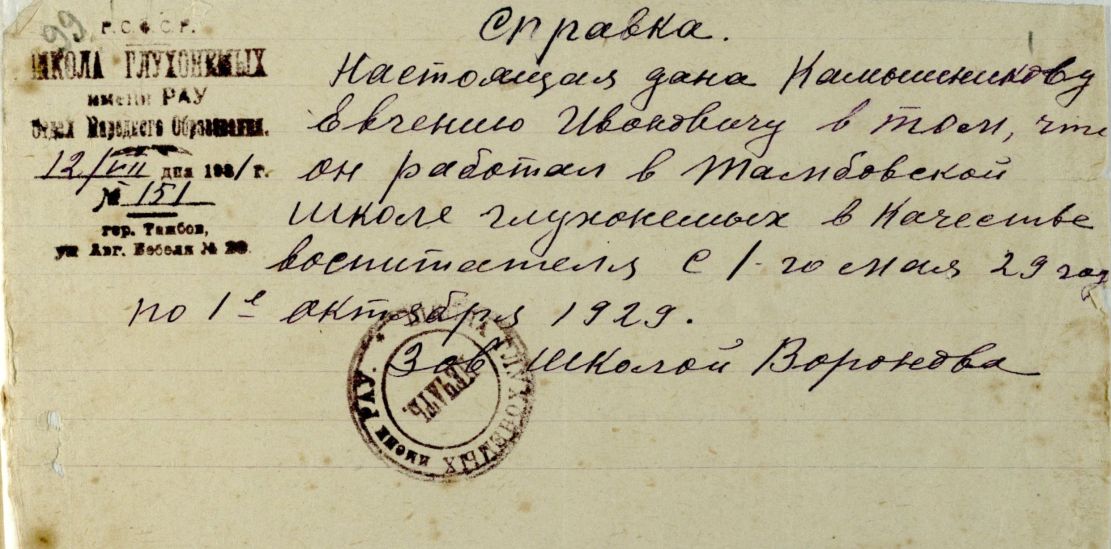 99
Р.С.Ф.С.Р.
ШКОЛА ГЛУХОНЕМЫХ
имени РАУ
Отдел Народного Образования.
12/VII дня 1931 г.
№ 151
гор. Тамбов,
ул Авг. Бебеля № 20.
Справка.
Настоящая дана Камышникову
Евгению Ивановичу в том, что
он работал в Тамбовской
школе глухонемых в качестве
воспитателя с 1-го мая 29 год
по 1е октября 1929.
Зав школой Воронова
ШКОЛА ГЛУХОНЕМЫХ имени РАУ.
ПЕЧАТЬ.